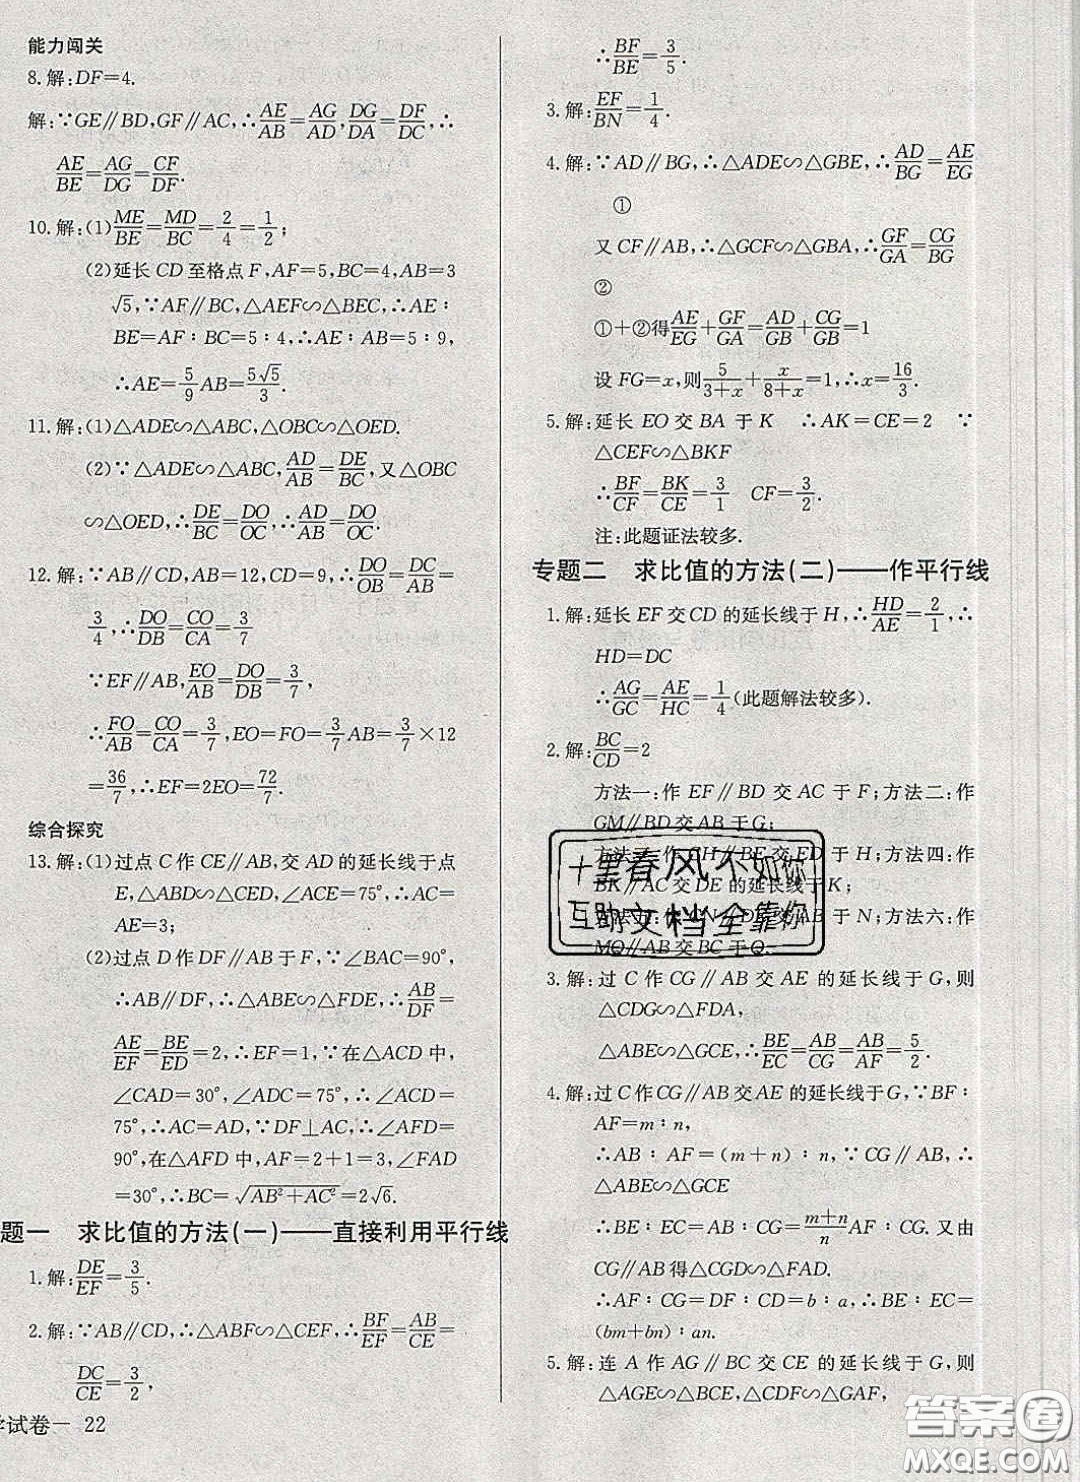 能力闯关
8.解:DF=4.
解:∵GE∥BD,GF∥AC,∴AE/AB=AG/AD,DG/DA=DF/DC,∴
AE/BE=AG/DG=CF/DF.
10.解:(1)ME/BE=MD/BC=2/4=1/2;
(2)延长 CD 至格点 F,AF=5,BC=4,AB=3
√5,∵AF∥BC,△AEF∽△BEC,∴AE∶
BE=AF∶BC=5∶4,∴AE∶AB=5∶9,
∴AE=5/9AB=5√5/3.
11.解:(1)△ADE∽△ABC,△OBC∽△OED.
(2)∵△ADE∽△ABC,AD/AB=DE/BC,又△OBC
∽△OED,∴DE/BC=DO/OC,∴AD/AB=DO/OC.
12.解:∵AB∥CD,△OAB∽△OCD,∴DO/OB=DC/AB=
3/4,∴DO/DB=CO/CA=3/7
∵EF∥AB,∴EO/AB=DO/DB=3/7,
∴FO/AB=CO/CA=3/7,EO=FO=3/7AB=3/7×12
=36/7,∴EF=2EO=72/7.
综合探究
13.解:(1)过点 C 作 CE∥AB,交 AD 的延长线于点
E,△ABD∽△CED,∠ACE=75°,∴AC=
AE=3;
(2)过点 D 作 DF∥AB 于 F,∵∠BAC=90°,
∴AB∥DF,∴△ABE∽△FDE,∴AB/DF=
AE/EF=BE/ED=2,∴EF=1,∵在△ACD 中,
∠CAD=30°,∠ADC=75°,∴∠ACD=
75°,∴AC=AD,∵DF⊥AC,∴∠AFD=
90°,在△AFD 中,AF=2+1=3,∠FAD
=30°,∴BC=√(AB²+AC²)=2√6.
题一 求比值的方法(一)——直接利用平行线
1.解:DE/EF=3/5.
2.解:∵AB∥CD,∴△ABF∽△CEF,∴BF/EF=AB/CE=
DC/CE=3/2,
学试卷— 22
∴BF/BE=3/5.
3.解:EF/BN=1/4.
4.解:∵AD∥BG,∴△ADE∽△GBE,∴AD/BG=AE/EG
①
又 CF∥AB,∴△GCF∽△GBA,∴GF/GA=CG/BG
②
①+②得AE/EG+GF/GA=AD/GB+CG/GB=1
设 FG=x,则5/(3+x)+x/(8+x)=1,∴x=16/3.
5.解:延长 EO 交 BA 于 K ∴AK=CE=2 ∵
△CEF∽△BKF
∴BF/CF=BK/CE=3/1 CF=3/2.
注:此题证法较多.
专题二 求比值的方法(二)——作平行线
1.解:延长 EF 交 CD 的延长线于 H,∴HD/AE=2/1,∴
HD=DC
∴AG/GC=AE/HC=1/4(此题解法较多).
2.解:BC/CD=2
方法一:作 EF∥BD 交 AC 于 F;方法二:作
GM∥BD 交 AB 于 G;
方法三:作 CH∥BE 交 DE 于 H;方法四:作
BK∥AC 交 DE 的延长线于 K;
方法五:作 DN∥ 交 AB 于 N;方法六:作
MQ∥AB 交 BC 于 Q.
十里春风不如你
互助文档全靠你
3.解:过 C 作 CG∥AB 交 AE 的延长线于 G,则
△CDG∽△FDA,
△ABE∽△GCE,∴BE/EC=AB/CG=AB/AF=5/2.
4.解:过 C 作 CG∥AB 交 AE 的延长线于 G,∵BF∶
AF=m∶n,
∴AB∶AF=(m+n)∶n,∵CG∥AB,
∴BE∶EC=AB∶CG=(m+n)/n AF∶CG. 又由
CG∥AB 得△CDG∽△FAD.
∴AF∶CG=DF∶CD=b∶a,∴BE∶EC=
(bm+bn)∶an.
5.解:连 A 作 AG∥BC 交 CE 的延长线于 G,则
△AGE∽△BCE,△CDF∽△GAF,
答案圈
MXQE.COM